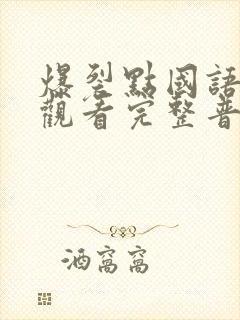 爆裂點國語
觀看完整普
酒窩窩